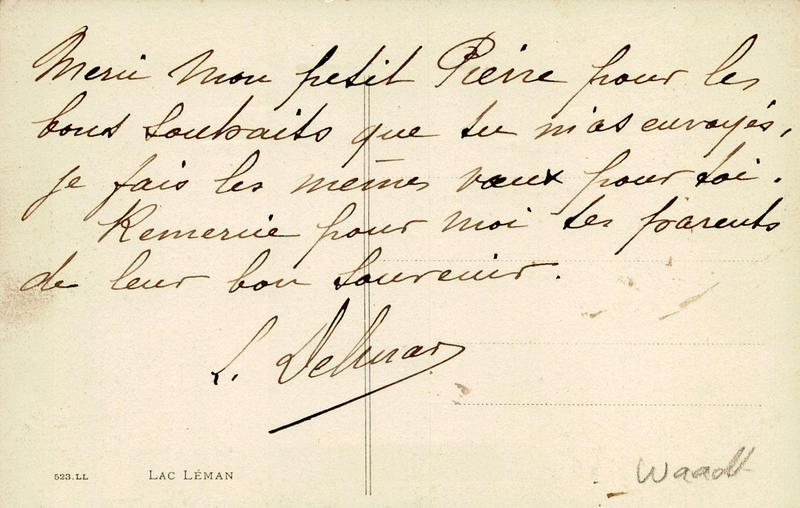 Merci mon petit Pierre pour les
bons souhaits que tu m'as envoyés,
je fais les mêmes vœux pour toi.
Remercie pour moi tes parents
de leur bon souvenir.
L.
523. LL LAC LÉMAN
Waadt